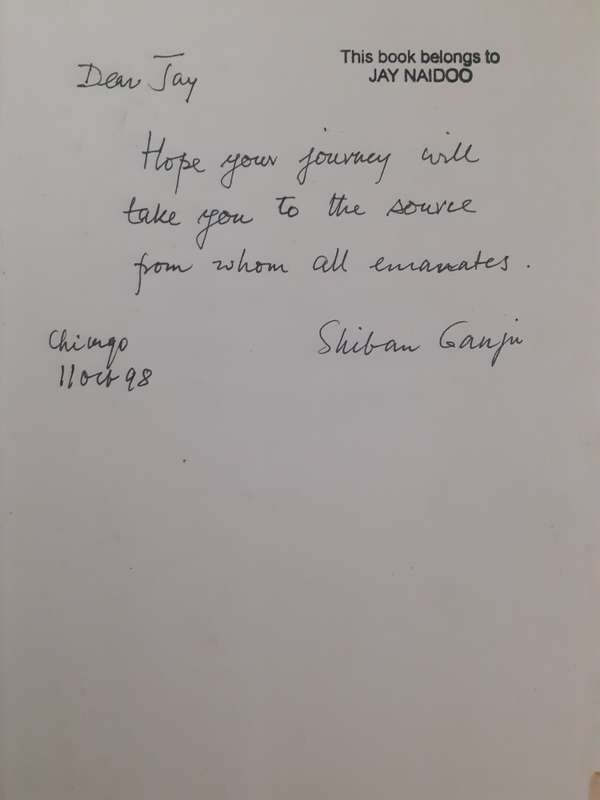 This book belongs to
JAY NAIDOO
Dear Jay
Hope your journey will
take you to the source
from whom all emanates.
Shiban Ganju
Chicago
11 Oct 98